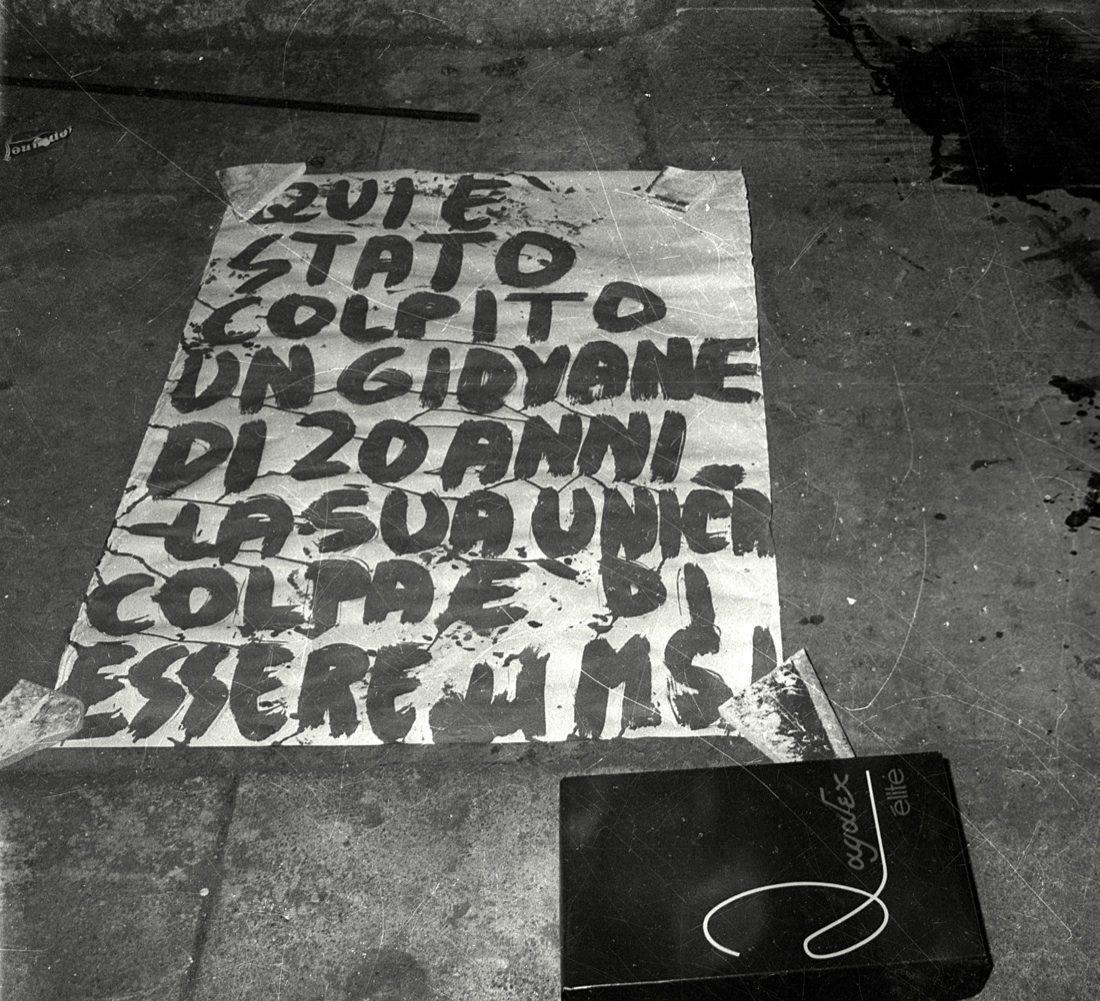 QUI E
STATO
COLPITO
UN GIOVANE
DI 20 ANNI
LA SUA UNICA
COLPA E DI
ESSERE MSI
élite